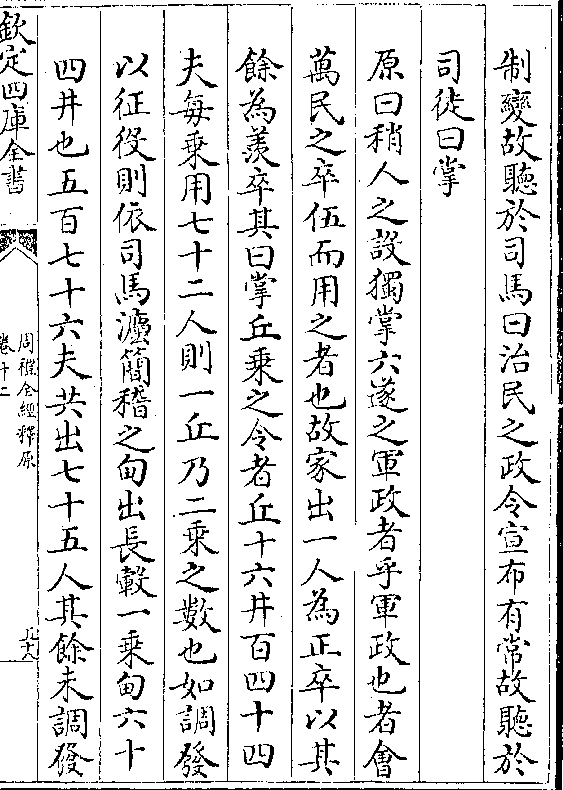 制變故聽於司馬曰治民之政令宣布有常故聽於
司徒曰掌
原曰稍人之設獨掌六遂之軍政者乎軍政也者會
萬民之卒伍而用之者也故家出一人為正卒以其
餘為羨卒其曰掌丘乗之令者丘十六井百四十四
夫每乗用七十二人則一丘乃二乗之數也如調發
以征役則依司馬灋簡稽之甸出長轂一乗甸六十
四井也五百七十六夫共出七十五人其餘未調發
欽定四庫全書
周禮全經釋原
卷十二